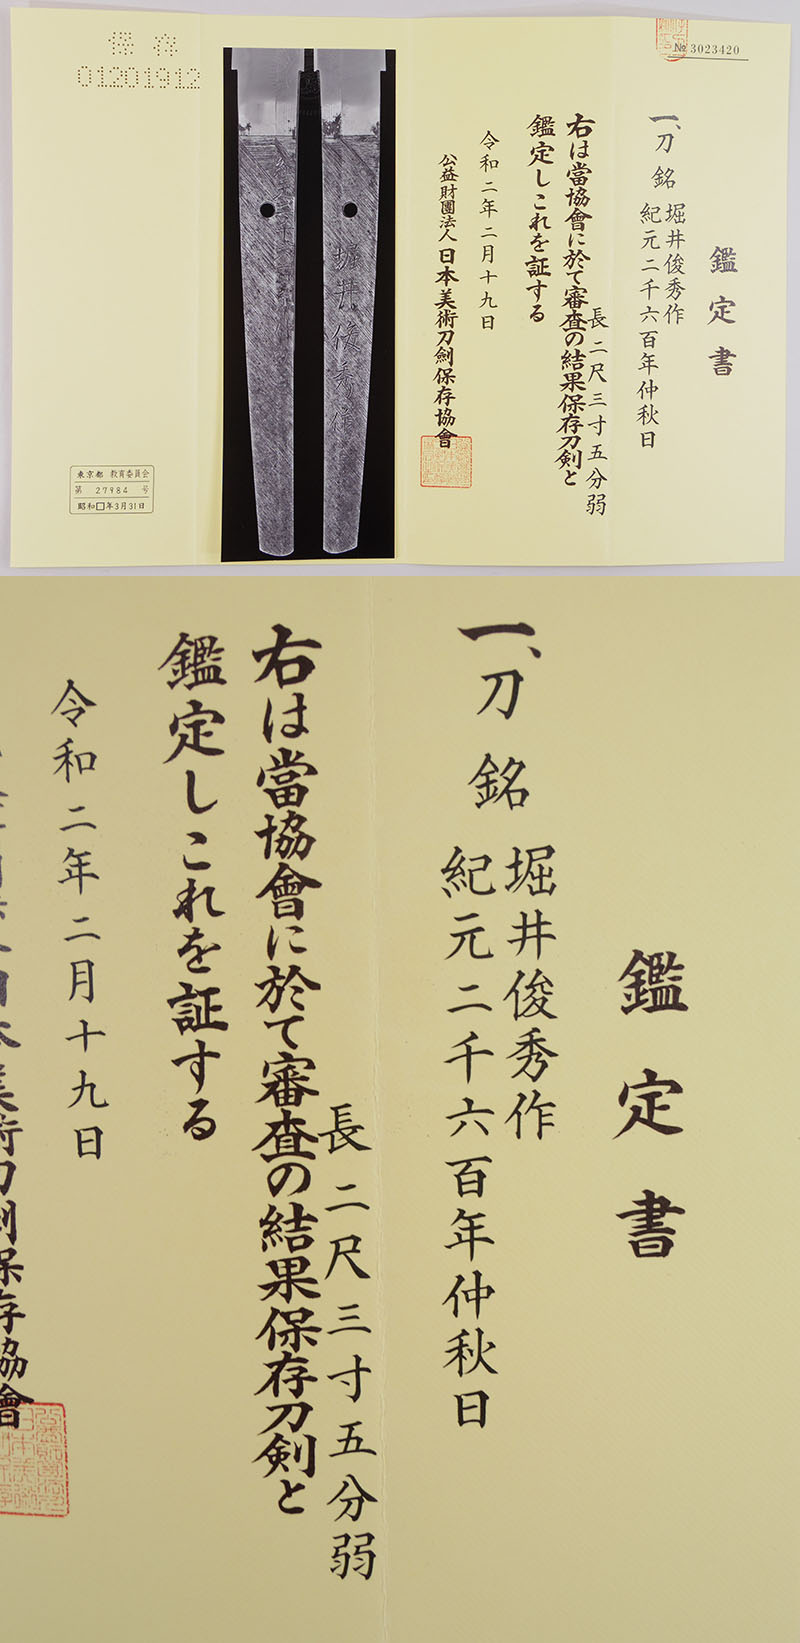 № 3023420
鑑定書
一、刀 銘 堀井俊秀作
紀元二千六百年仲秋日
長 二尺三寸五分弱
右は當協會に於て審査の結果保存刀剣と
鑑定しこれを証する
令和二年二月十九日
公益財團法人日本美術刀劍保存協會
堀井俊秀作
保存
01201912
東京都 教育委員会
第 27984 号
昭和□年3月31日
鑑定書
一、刀 銘 堀井俊秀作
紀元二千六百年仲秋日
長 二尺三寸五分弱
右は當協會に於て審査の結果保存刀剣と
鑑定しこれを証する
令和二年二月十九日
日本美術刀劍保存協會